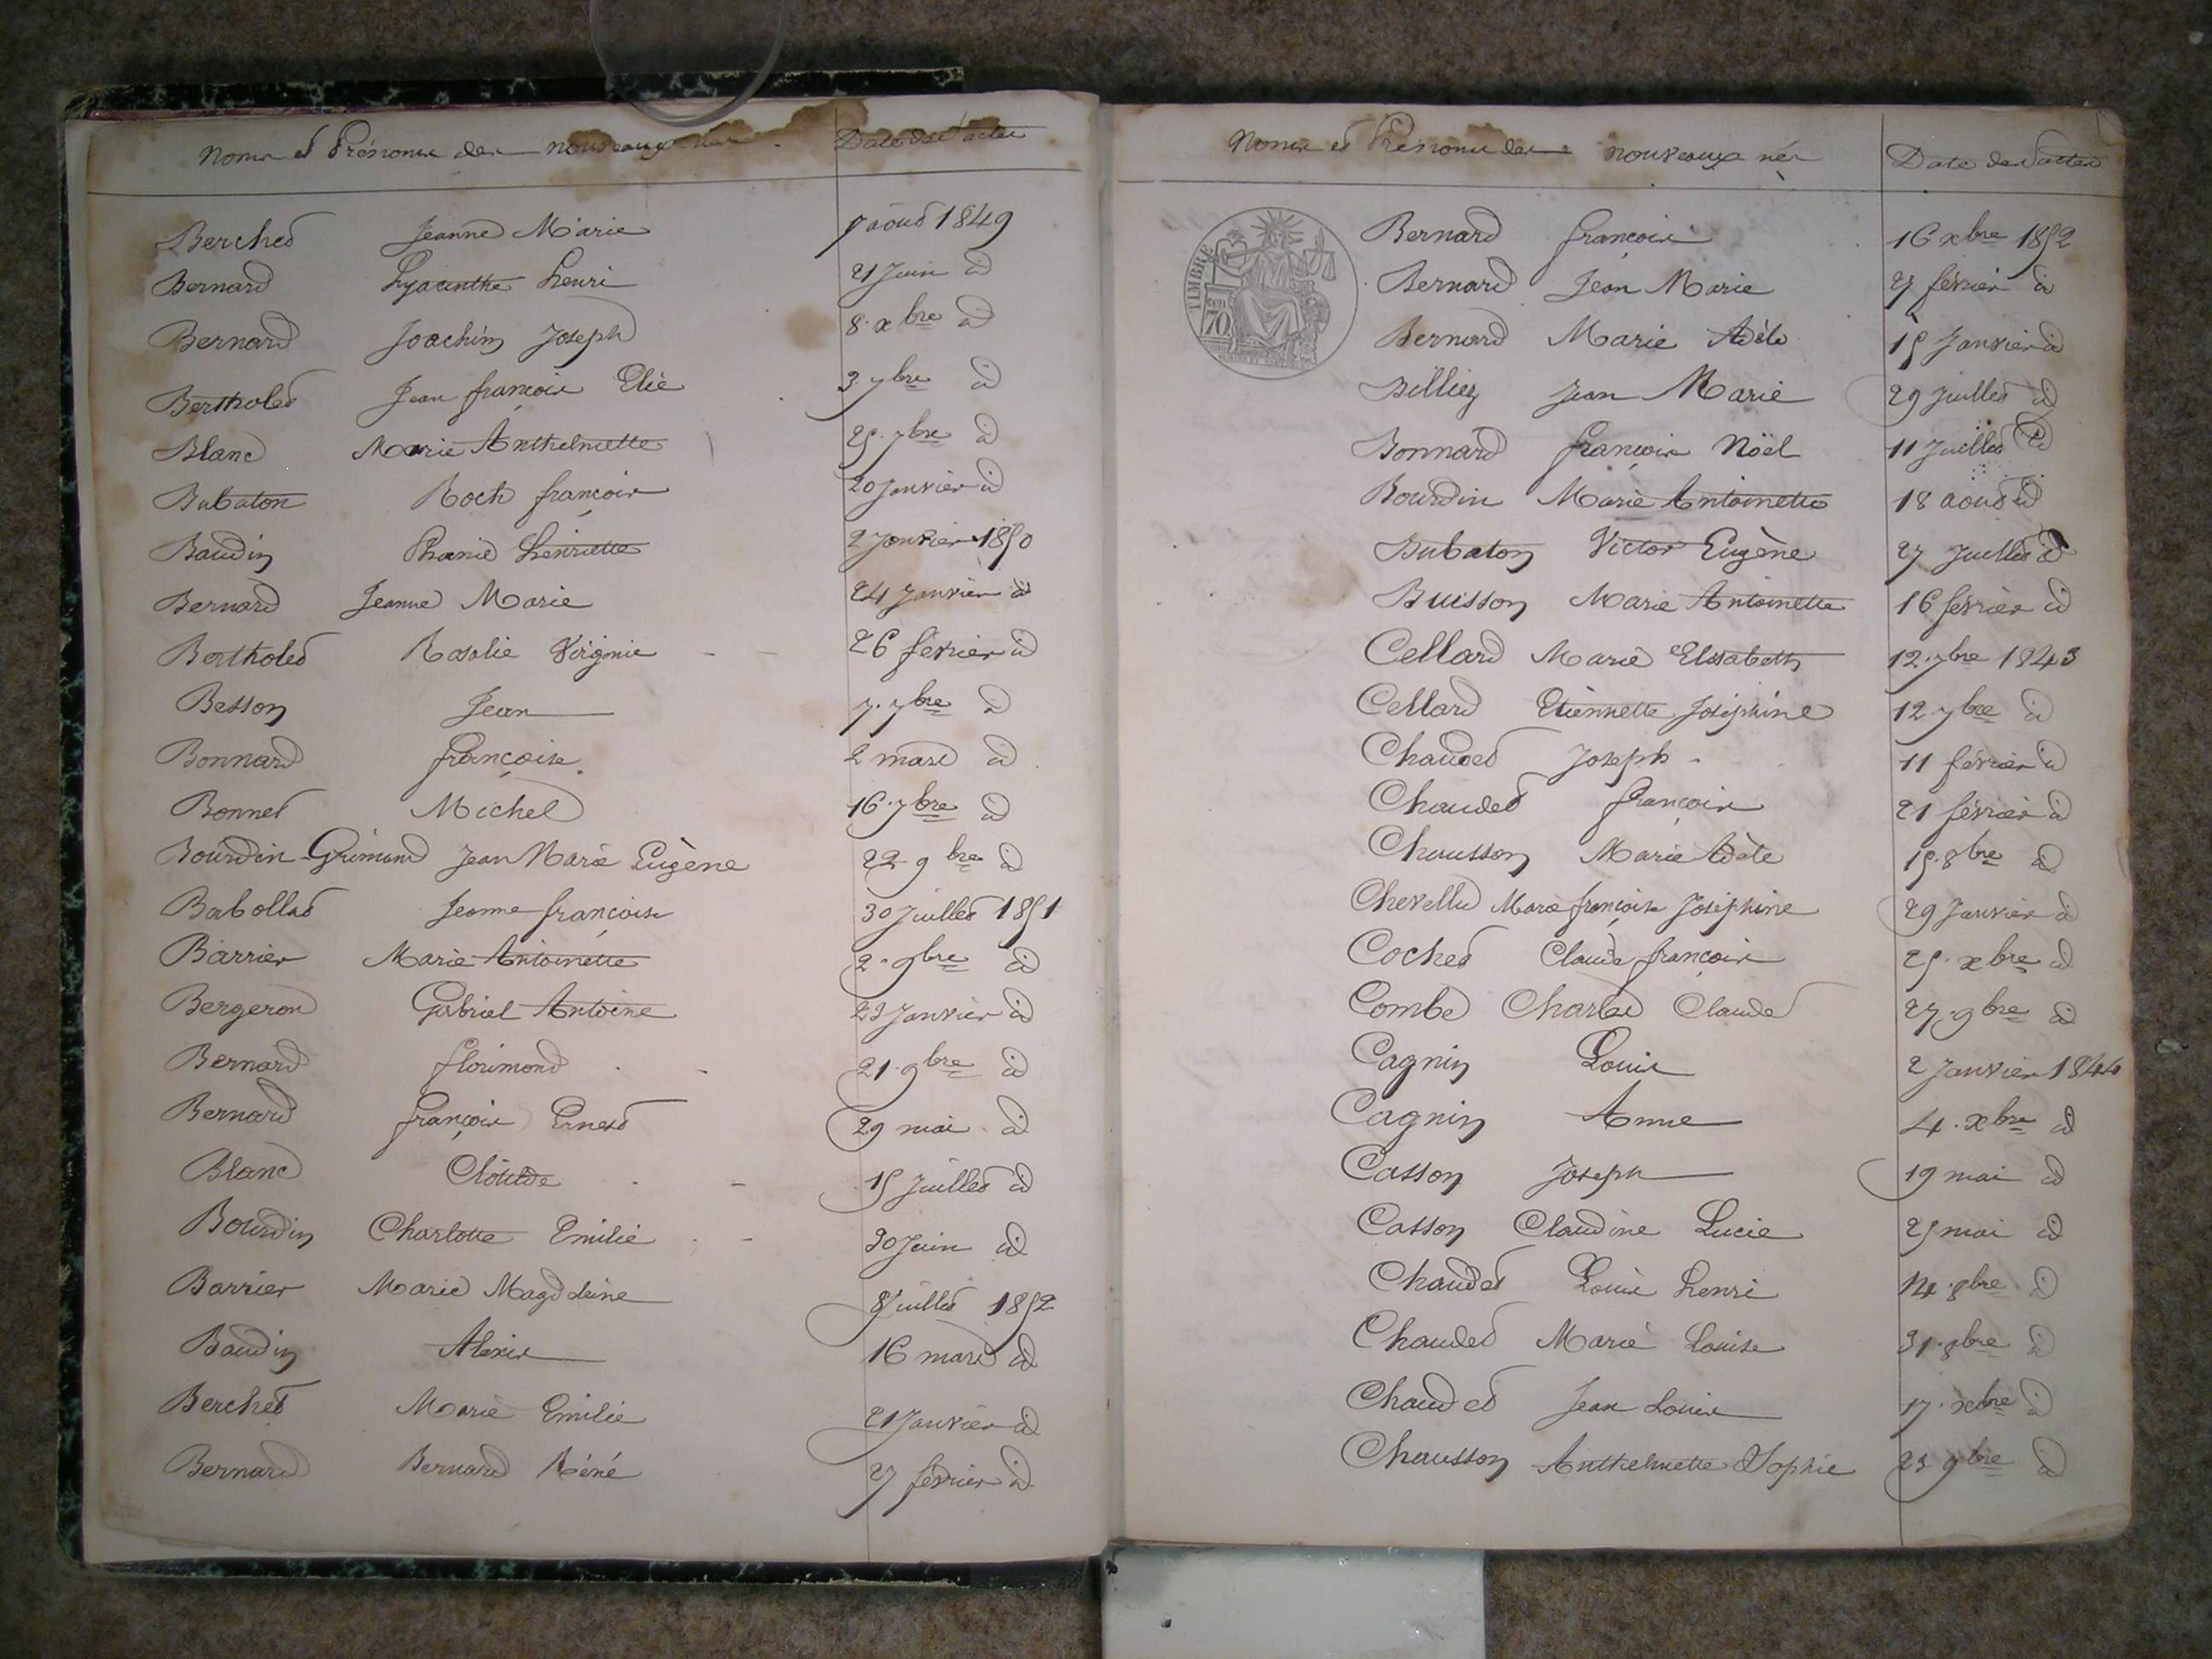 Noms et Prénoms des nouveaux nés
Date des actes
Berchet Jeanne Marie 7 aout 1849
Bernard hyacinthe henri 21 Juin id
Bernard Joachim Joseph 8. xbre id
Bertholet Jean françois Elie 3. 7bre id
Blanc Marie Anthelmette 25. 7bre id
Bubaton Roch françois 20 Janvier id
Baudin Phanie henriette 2 Janvier 1850
Bernard Jeanne Marie 24 Janvier id
Bertholet Rosalie Virginie 26 février id
Besson Jean 7. 7bre id
Bonnard françoise 2 mars id
Bonnet Michel 16. 7bre id
Bourdin-Grimond Jean Marie Eugène 22. 9bre id
Babollat Jeanne françoise 30 Juillet 1851
Barrier Marie Antoinette 2. 9bre id
Bergeron Gabriel Antoine 23 Janvier id
Bernard florimond 21. 9bre id
Bernard françois Ernest 29 mai id
Blanc Clotilde 15 Juillet id
Bourdin Charlotte Emilie 30 Juin id
Barrier Marie Magdeleine 8 Juillet 1852
Baudin Alexis 16 mars id
Berchet Marie Emilie 21 Janvier id
Bernard Bernard Réné 27 février id
Noms et Prénoms des nouveaux nés
Date des actes
TIMBRE
70
Bernard françois 16 xbre 1852
Bernard Jean Marie 27 février id
Bernard Marie Adèle 15 Janvier id
Billiez Jean Marie 29 Juillet id
Bonnard françois Noël 11 Juillet id
Bourdin Marie Antoinette 18 aout id
Bubaton Victor Eugène 27 Juillet id
Buisson Marie Antoinette 16 février id
Cellard Marie Elisabeth 12. 7bre 1843
Cellard Etiennette Joséphine 12. 7bre id
Chaudet Joseph 11 février id
Chaudet françois 21 février id
Chausson Marie Adèle 15. 8bre id
Chevellu Marie françoise Joséphine 29 Janvier id
Cochet Claude françois 25. xbre id
Combe Charles Claude 27. 9bre id
Cagnin Louis 2 Janvier 1844
Cagnin Anne 4. xbre id
Casson Joseph 19 mai id
Casson Claudine Lucie 25 mai id
Chaudet Louis henri 14. 8bre id
Chaudet Marie Louise 31. 8bre id
Chaudet Jean Louis 17. xbre id
Chausson Anthelmette Sophie 23 9bre id